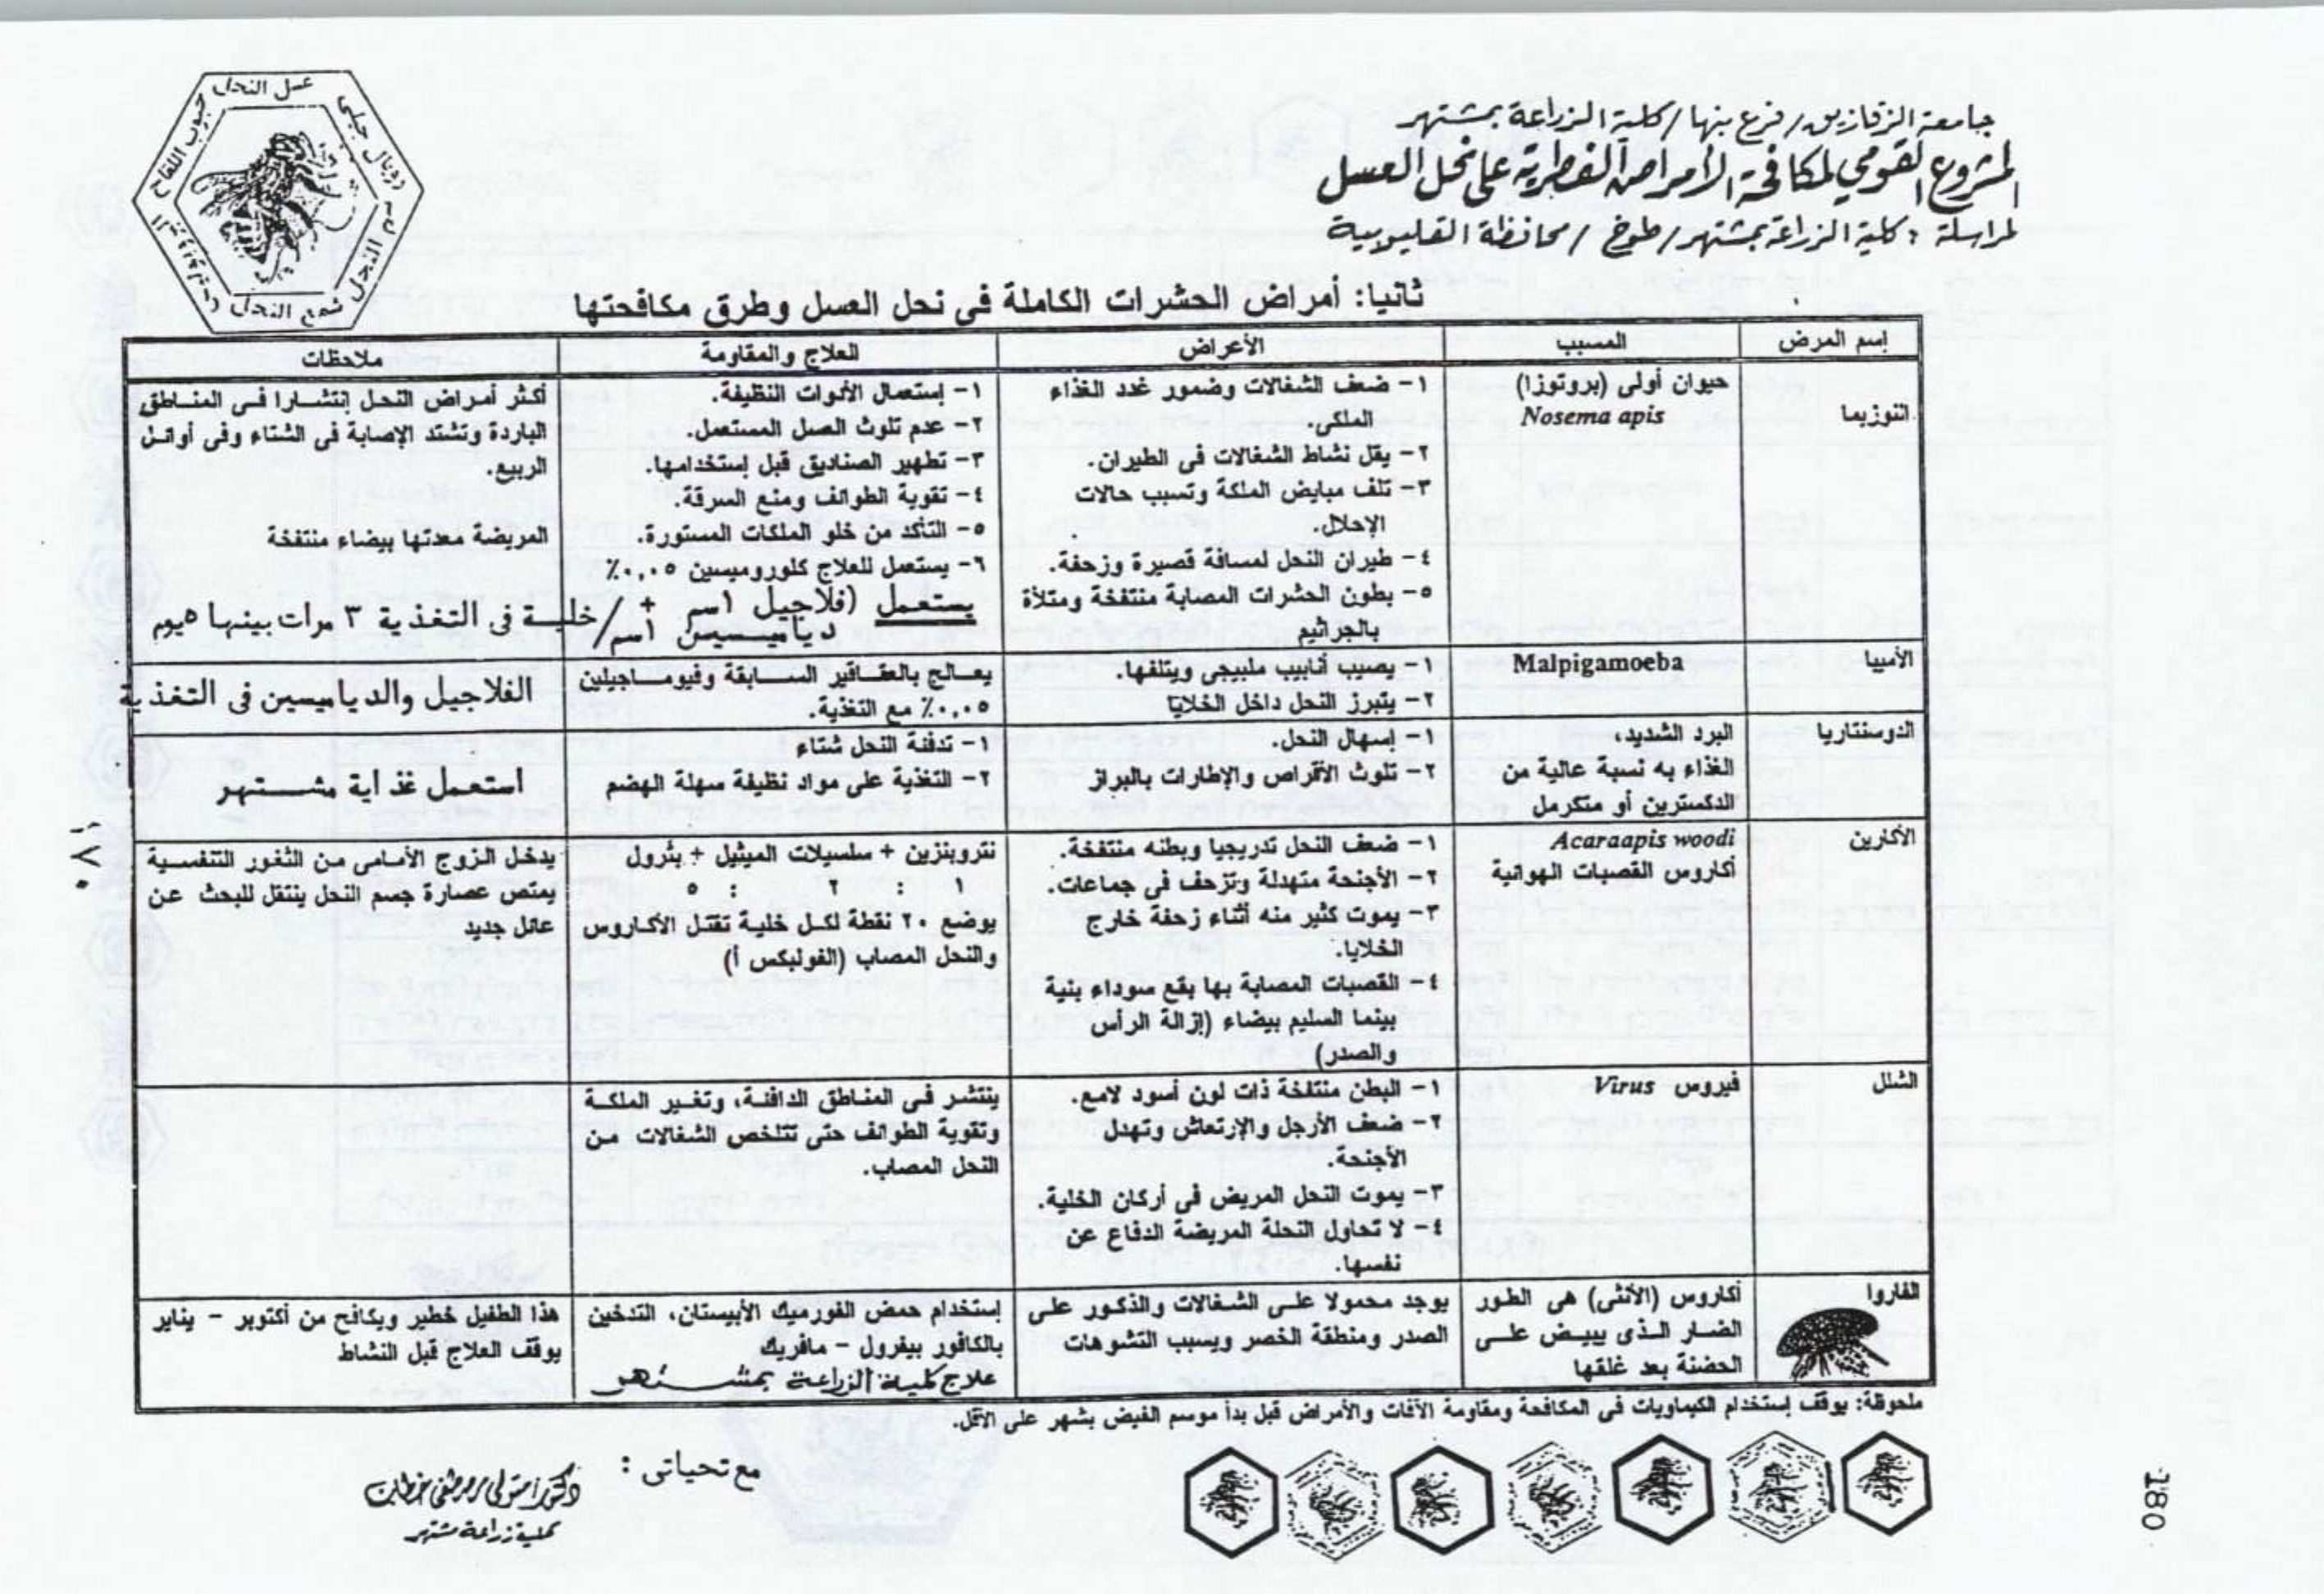 جامعة الزقازيق / فرع بنها / كلية الزراعة بمشتهر
المشروع القومي لمكافحة الأمراض الفطرية على نحل العسل
لمراسلة : كلية الزراعة بمشتهر / طوخ / محافظة القليوبية
عسل النحل
رويال جيلى
سم النحل
شمع النحل
حبوب اللقاح
ثانيا: أمراض الحشرات الكاملة فى نحل العسل وطرق مكافحتها
إسم المرض
المسبب
الأعراض
العلاج والمقاومة
ملاحظات
النوزيما
حيوان أولى (بروتوزا)
Nosema apis
١- ضعف الشغالات وضمور غدد الغذاء
الملكى.
٢- يقل نشاط الشغالات فى الطيران.
٣- تلف مبايض الملكة وتسبب حالات
الإحلال.
٤- طيران النحل لمسافة قصيرة وزحفة.
٥- بطون الحشرات المصابة منتفخة ومتلأة
بالجراثيم
١- إستعمال الأدوات النظيفة.
٢- عدم تلوث العسل المستعمل.
٣- تطهير الصناديق قبل إستخدامها.
٤- تقوية الطوائف ومنع السرقة.
٥- التأكد من خلو الملكات المستورة.
٦- يستعمل للعلاج كلوروميسين ٠,٠٥٪
يستعمل (فلاجيل ١سم + / خلية فى التغذية ٣ مرات بينها ٥يوم
دياميسين ١سم /
أكثر أمراض النحل إنتشارا فى المناطق
الباردة وتشتد الإصابة فى الشتاء وفى أوائل
الربيع.
المريضة معدتها بيضاء منتفخة
الأميبا
Malpigamoeba
١- يصيب أنابيب ملبيجى ويتلفها.
٢- يتبرز النحل داخل الخلايا
يعالج بالعقاقير السابقة وفيوماجيلين
٠,٠٥٪ مع التغذية.
الفلاجيل والدياميسين فى التغذية
الدوسنتاريا
البرد الشديد،
الغذاء به نسبة عالية من
الدكسترين أو متكرمل
١- إسهال النحل.
٢- تلوث الأقراص والإطارات بالبراز
١- تدفئة النحل شتاء
٢- التغذية على مواد نظيفة سهلة الهضم
استعمل غذاية مشتهر
الأكارين
Acaraapis woodi
أكاروس القصبات الهوائية
١- ضعف النحل تدريجيا وبطنه منتفخة.
٢- الأجنحة متهدلة وتزحف فى جماعات.
٣- يموت كثير منه أثناء زحفة خارج
الخلايا.
٤- القصبات المصابة بها بقع سوداء بنية
بينما السليم بيضاء (إزالة الرأس
والصدر)
نتروبنزين + سلسيلات الميثيل + بترول
١ : ٢ : ٥
يوضع ٢٠ نقطة لكل خلية تقتل الأكاروس
والنحل المصاب (الفولبكس أ)
يدخل الزوج الأمامى من الثغور التنفسية
يمتص عصارة جسم النحل ينتقل للبحث عن
عائل جديد
الشلل
فيروس Virus
١- البطن منتفخة ذات لون أسود لامع.
٢- ضعف الأرجل والإرتعاش وتهدل
الأجنحة.
٣- يموت النحل المريض فى أركان الخلية.
٤- لا تحاول النحلة المريضة الدفاع عن
نفسها.
ينتشر فى المناطق الدافئة، وتغير الملكة
وتقوية الطوائف حتى تتلخص الشغالات من
النحل المصاب.
الفاروا
أكاروس (الأنثى) هى الطور
الضار الذى يبيض على
الحضنة بعد غلقها
يوجد محمولا على الشغالات والذكور على
الصدر ومنطقة الخصر ويسبب التشوهات
إستخدام حمض الفورميك الأبيستان، التدخين
بالكافور بيفرول - مافريك
علاج كلية الزراعة بمشتهر
هذا الطفيل خطير ويكافح من أكتوبر - يناير
يوقف العلاج قبل النشاط
ملحوظة: يوقف إستخدام الكيماويات فى المكافحة ومقاومة الآفات والأمراض قبل بدأ موسم الفيض بشهر على الأقل.
مع تحياتى :
دكتور / متولى مصطفى خطاب
كلية زراعة مشتهر
١٧٠
180